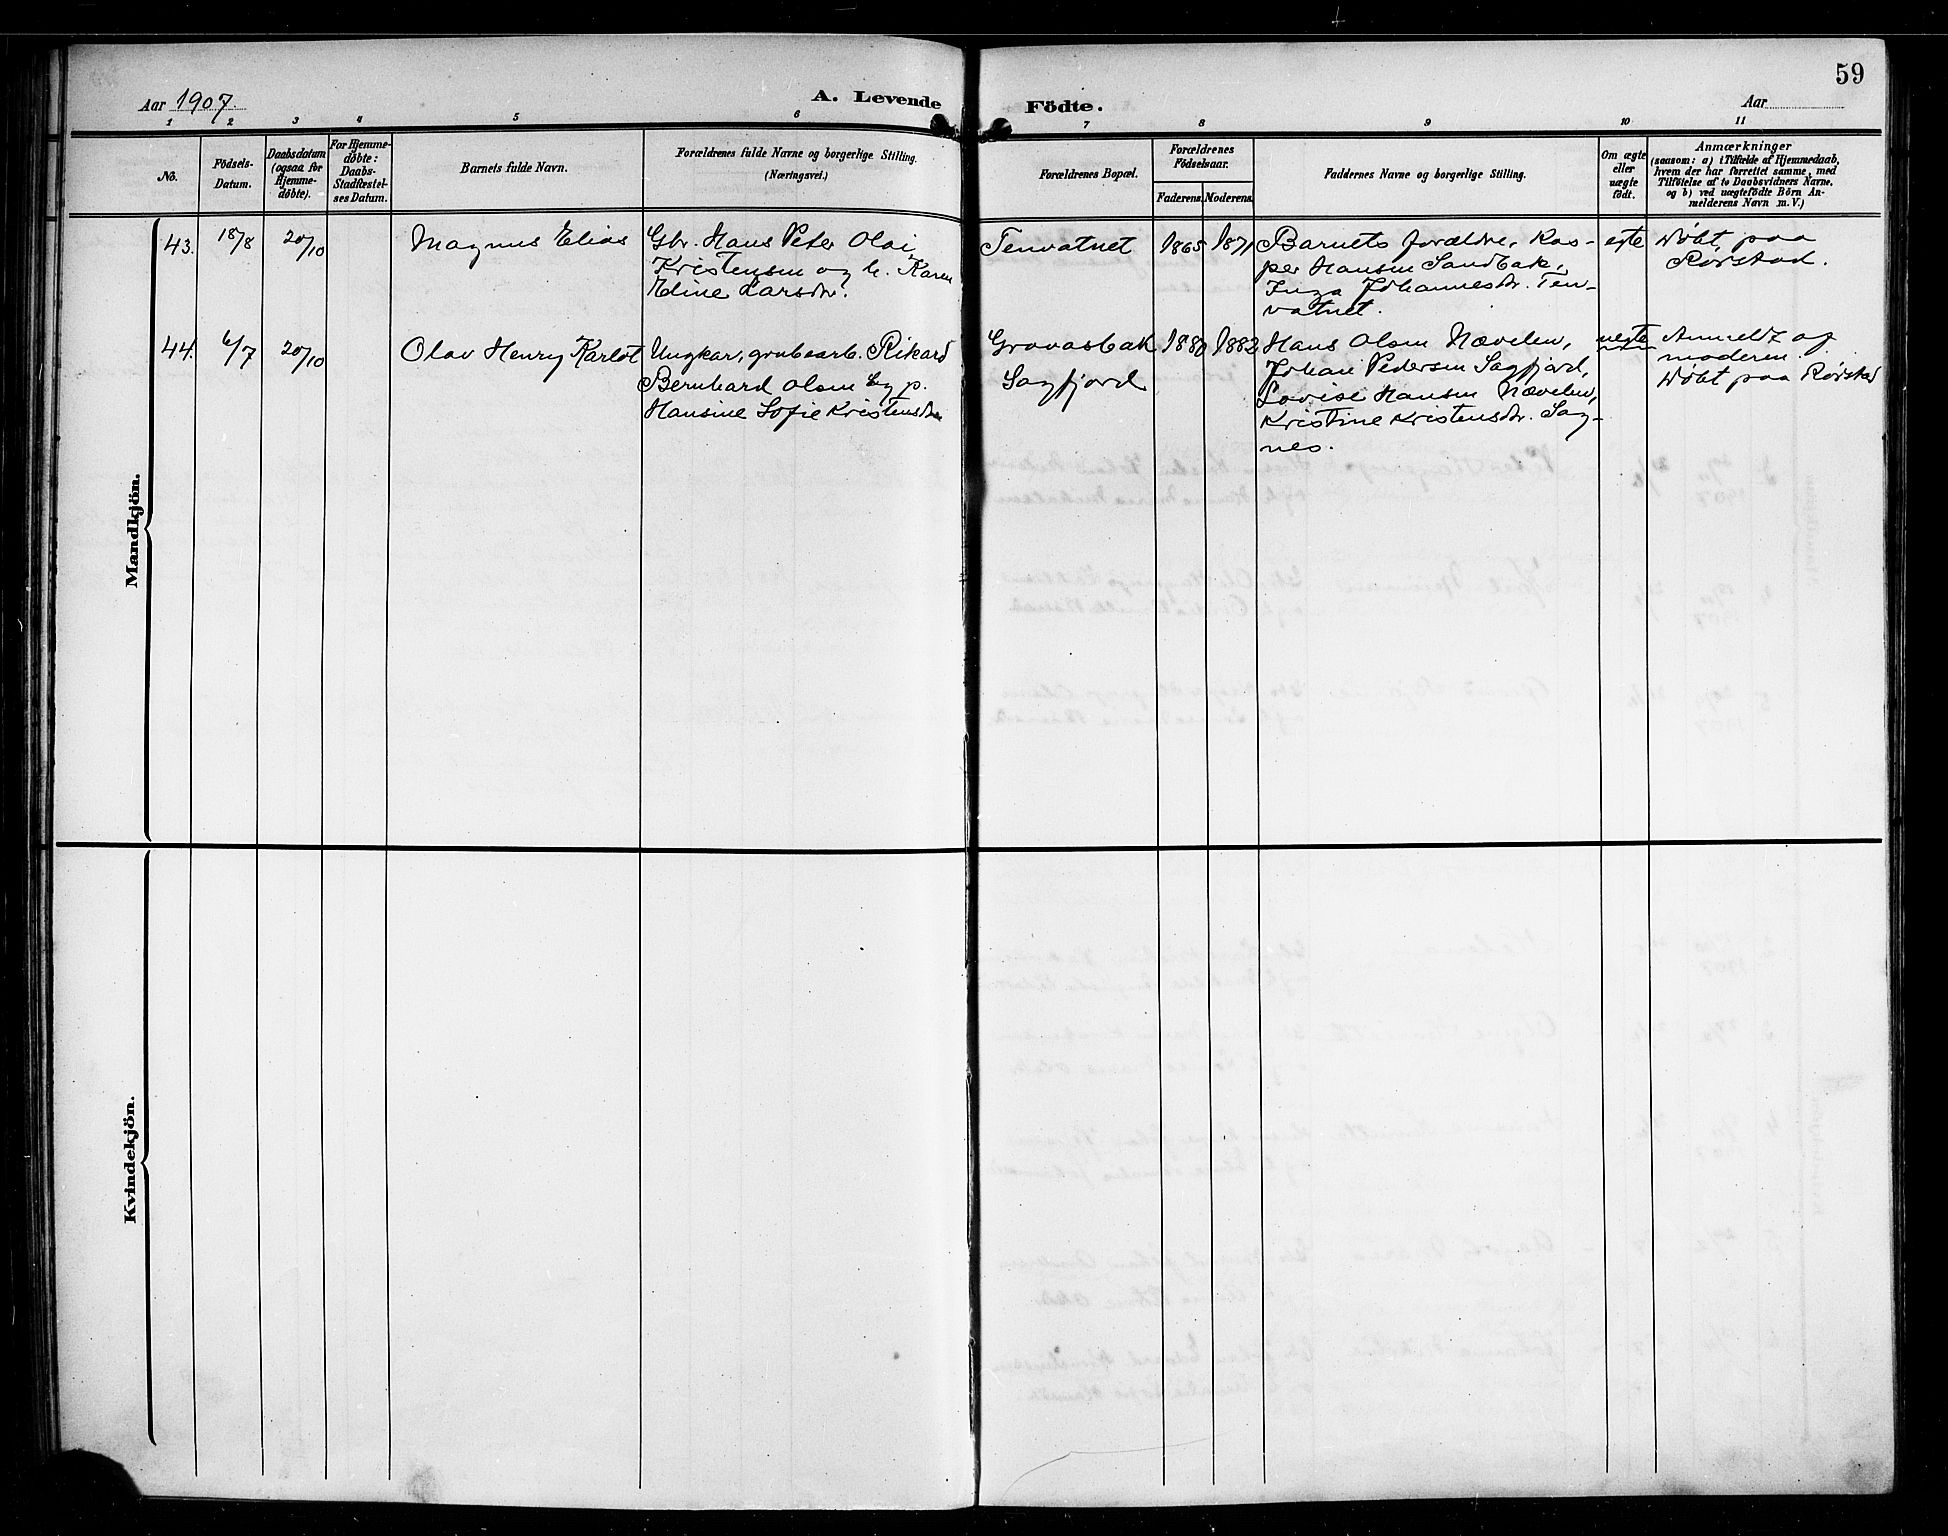 59
Aar 1907.
A. Levende Födte.
Aar
1 2 3 4 5 6 7 8 9 10 11
No.
Födsels-
Datum.
Daabsdatum
(ogsaa for
Hjemme-
döbte).
For Hjemme-
döbte:
Daabs-
Stadfæstel-
ses Datum.
Barnets fulde Navn.
Forældrenes fulde Navne og borgerlige Stilling.
(Næringsvei.)
Forældrenes Bopæl.
Forældrenes
Födselsaar.
Faderens.
Moderens.
Faddernes Navne og borgerlige Stilling.
Om ægte
eller
uægte
födt.
Anmærkninger
(saasom: a) i Tilfælde af Hjemmedaab,
hvem der har forrettet samme, med
Tilföielse af to Daabsvidners Navne,
og b) ved uægtefödte Börn An-
melderens Navn m. V.)
Mandkjön.
43.
18/8
20/10
Magnus Elias
Gbr. Hans Peter Olai
Kristensen og h. Karen
Eline Larsdr.
Tenvatnet
1865
1871
Barnets forældre, Kas-
per Hansen Sandbak,
Inga Johannesdr. Ten-
vatnet.
egte
Døbt paa
Rørstad.
44.
6/7
20/10
Olav Henry Karlot
Ungkar, grubearb. Rikard
Bernhard Olsen og p.
Hansine Sofie Kristensdr.
Grovasbak
Sagfjord
1880
1882
Hans Olsen Nævelen,
Johan Pedersen Sagfjord,
Lovise Hansen Nævelen,
Kristine Kristensdr. Sag-
nes.
uegte
Anmeldt af
moderen.
Døbt paa Rørstad
Kvindekjön.